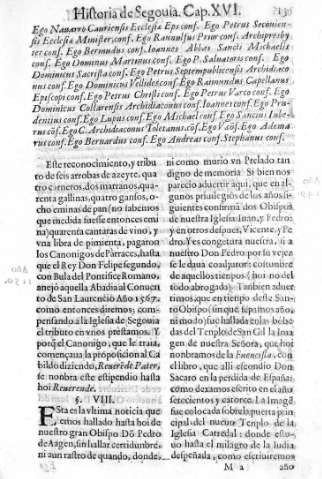 Historia de Segouia. Cap. XVI.
Ego Navarro Cauriensis Ecclesia Eps. conf. Ego Petrus
Ecclesia Minister conf. Ego Ranulfus Prior conf. Archipresby
ter conf. Ego Bermudus conf. Ioannes Abbas Sancti Michaelis
conf. Ego Dominus Martinus conf. Ego P. Salvatoris conf. Ego
Dominicus Sacrista conf. Ego Petrus Septempublicensis Archidiaco
nus conf. Ego Dominicus conf. Ego Raimundus Capellanus
Episcopi conf. Ego Petrus conf. Ego Petrus Varco conf. Ego
Dominicus Collarensis Archidiaconus conf. Ioannes conf. Ego Pru
dentius conf. Ego Lupus conf. Ego Michael conf. Ego Sancius
rus cõf. Ego C. Archidiaconus Toletanus cõf. Ego cõf. Ego Adema
rus conf. Ego Bernardus conf. Ego Andreas conf. Stephanus conf.
Este reconocimiento, y tribu
to de seis arrobas de azeyte, qua
tro carneros, dos marranos, qua-
renta gallinas, quatro gansos, o-
cho eminas de pan (no sabemos
que medida fuesse entonces emi
na) quarenta cantaras de vino, y
vna libra de pimienta, pagaron
los Canonigos de Párraces, hasta
que el Rey Don Felipe segundo,
con Bula del Pontifice Romano,
anejó aquella Abadia al Conuen
to de San Laurencio Año 1567.
como entonces diremos; com-
pensando a la Iglesia de Segouia
el tributo en vnos prestamos. Y
porq̃ el Canonigo, que le traia,
començaua la proposicion al Ca
bildo diziendo, Reuerẽde Pater,
se nonbra este estipendio hasta
hoi Reuerende.
§. VIII.
Esta es la vltima noticia que
emos hallado hasta hoi de
nuestro gran Obispo Dõ Pedro
de Aagen, sin hallar certidumbre,
ni aun rastro de quando, donde,
ni como murio vn Prelado tan
digno de memoria. Si bien nos
parecio aduertir aqui, que en al-
gunos priuilegios de los años si-
guientes confirmã dos Obispos
de nuestra Iglesia Iuan, y Pedro:
y en otros despues, Vicente, y Pe
dro. Yes congetura nuestra, si a
nuestro Don Pedro por su vejez
se le daua coadjutor: costumbre
de aquellos tiempos (hoi no del
todo abrogada) Tanbien aduer
timos, que en tiempo deste San-
to Obispo (sin que sepamos año,
ni modo) fue hallada en las bobe
das del Templo de San Gil la Ima
gen de nuestra Señora, que hoi
nonbramos de la Fuencisla, con
el libro, que alli escondio Don
Sacaro en la perdida de España:
como dexamos escrito en el año
setecientos y catorce. La Imagẽ
fue colocada sobre la puerta prin
cipal del nueuo Templo de la
Iglesia Catredal: donde estu-
uo hasta el milagro de la ludia
despeñada, como escriuiremos
M 2
año